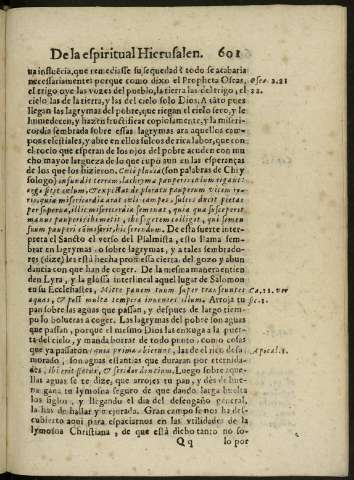 De la espiritual Hierusalen. 601
ua influēcia, que remediasse su sequedad è todo se acabaria
necessariamente: porque como dixo el Propheta Oseas,
Osea. 2. 21
el trigo oye las vozes del pueblo, la tierra las del trigo, el
22.
cielo las de la tierra, y las del cielo solo Dios. A tāto pues
llegan las lagrymas del pobre, que riegan el cielo seco, y le
humedecen, y hazen fructificar copiosamente, y la miseri-
cordia sembrada sobre essas lagrymas ara aquellos cam-
pos celestiales, y abre en ellos sulcos de rica labor, que con
el rocio que esperan de los ojos del pobre acuden con mu
cho mayor largueza de lo que cupo aun en las esperanças
de los que los hizieron. Cœli pluuia (son palabras de Chry
sologo) infundit terram, lachryma pauperis
cœlum, & expectat de ploratu pauperum
quia misericordia arat cœli campos, sulcos ducit pietas
per superna, illic misericordia seminat, quia qua susceperit
manus pauperis ibi segetem colliget, qui semen
suum pauperi cōmiserit, hic serendum. De esta suerte inter-
preta el Sancto el verso del Psalmista, esso llama sem-
brar en lagrymas o sobre lagrymas, y a tales sembrado-
res (dize) les està hecha promessa cierta, del gozo y abun
dancia con que han de coger. De la mesma manera entien
den Lyra, y la glossa interlineal aquel lugar de Salomon
en su Ecclesiastes, Mitte panem tuum super transeuntes
Ca. 11. ver
aquas, & post multa tempora inuenies illum. Arroja tu
sic. 1.
pan sobre las aguas que passan, y despues de largo tiem-
po lo bolueras a coger. Las lagrymas del pobre son aguas
que passan, porque el mesmo Dios las enxuga a la puer-
ta del cielo, y manda borrar de todo punto, como cosas
que ya passaron: quia prima abierunt, las de el rico desa-
Apocal.
morado, son aguas estantias que duraran por eternida-
des, ibi erit fletus, & stridor dentium. Luego sobre aque-
llas aguas se te dize, que arrojes tu pan, y dès de bue
na gana tu lymosna seguro de que dando larga buelta
los siglos, y llegando el dia del desengaño general,
la has de hallar mejorada. Gran campo se nos ha des-
cubierto aqui para espaciarnos en las vtilidades de la
lymosna Christiana, de que està dicho tanto no so-
Q q lo por